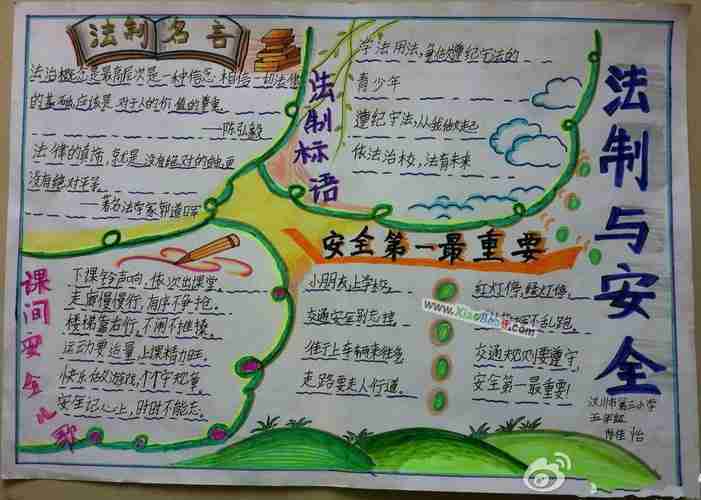 法制名言
法治概念的最高层次是一种信念,相信一切法律
的基础,应该是对于人的价值的尊重。
——陈弘毅
法律的真谛,就是没有绝对的自由,更
没有绝对平等。
——著名法学家郭道晖
法制标语
学法用法,争做遵纪守法的
青少年
遵纪守法,从我做起
依法治校,法有未来
法制与安全
课间安全儿歌
下课铃声响,依次出课堂。
走廊慢慢行,有序不争抢。
楼梯靠右行,不闹不推搡。
运动要适量,上课精力旺。
快乐做游戏,个个守规章。
安全记心上,时时不能忘。
安全第一最重要
小朋友上学校,
交通安全别忘掉。
马路上车辆来往多
走路要走人行道。
红灯停,绿灯行,
不乱跑。
交通规则要遵守,
安全第一最重要!
汉川市第三小学
五年级
佳怡
www.XiaoBaoW.com